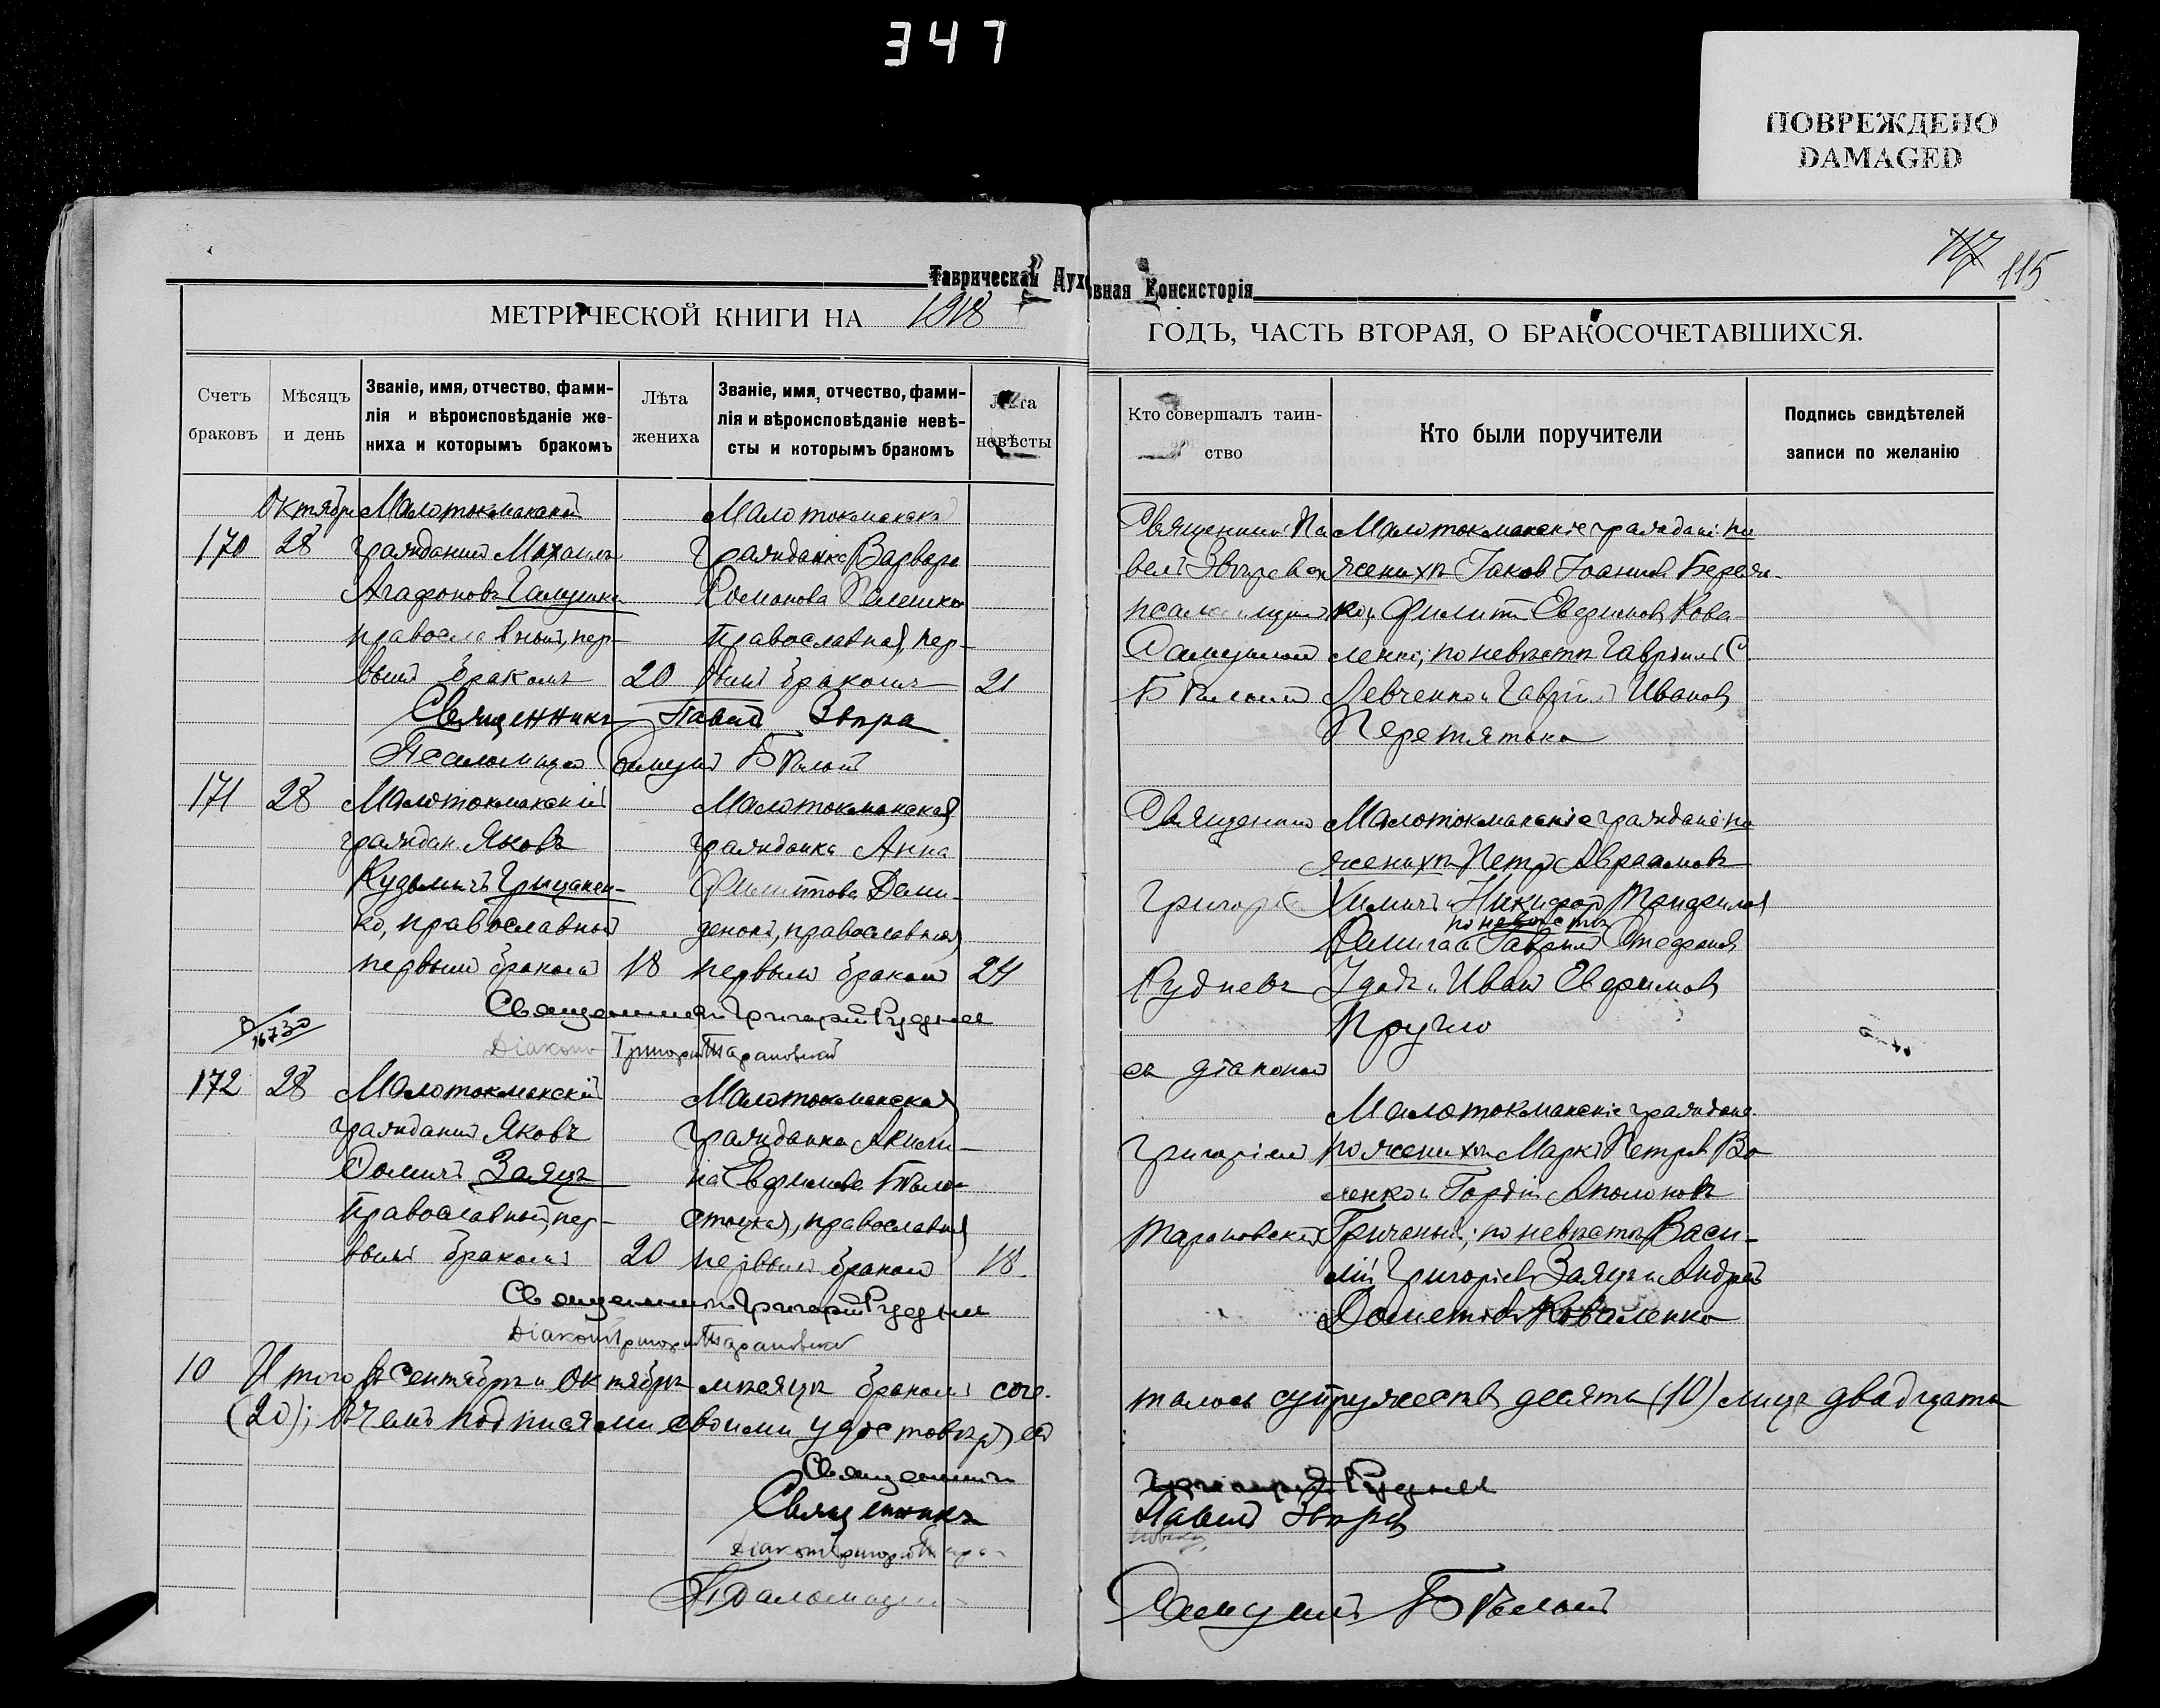 347
ПОВРЕЖДЕНО
DAMAGED
117 115
Таврическая Духовная Консисторія
МЕТРИЧЕСКОЙ КНИГИ НА 1918
ГОДЪ, ЧАСТЬ ВТОРАЯ, О БРАКОСОЧЕТАВШИХСЯ.
Счетъ браковъ
Мѣсяцъ и день
Званіе, имя, отчество, фами-
лія и вѣроисповѣданіе же-
ниха и которымъ бракомъ
Лѣта жениха
Званіе, имя, отчество, фами-
лія и вѣроисповѣданіе невѣ-
сты и которымъ бракомъ
Лѣта невѣсты
Кто совершалъ таин-
ство
Кто были поручители
Подпись свидѣтелей
записи по желанію
Октябрь
170 28
Малотокмакскій
гражданинъ Михаилъ
Агафоновъ Галушка
православный, пер-
вымъ бракомъ
20
Малотокмакская
гражданка Варвара
Романова
православная, пер-
вымъ бракомъ
21
Священникъ Павелъ Звѣрев
Псаломщикъ Бѣлой
Священникъ Па
велъ Звѣревъ
псаломщикъ
Бѣлой
Малотокмакскіе граждане: по
женихѣ Іаковъ Іоанновъ
ко и Филиппъ Евфимовъ Кова-
ленко; по невѣстѣ Гавріилъ С.
Левченко и Гавріилъ Ивановъ
Перетятько
171 28
Малотокмакскій
граждан. Яковъ
Кузьмичъ Грицанен-
ко, православный
первымъ бракомъ
18
Малотокмакская
гражданка Анна
Филиппова Деми-
денко, православная
первымъ бракомъ
24
Священникъ Григорій Рудневъ
Діаконъ Григорій Тарановскій
Священникъ
Григорій
Рудневъ
съ діакономъ
Григоріемъ
Тарановскимъ
Малотокмакскіе граждане: по
женихѣ Петръ Авраамовъ
Химичъ и Никифоръ
по невѣстѣ
Гавріилъ Стефановъ
и Иванъ Евфимовъ
Пругло
16730
172 28
Малотокмакскій
гражданинъ Яковъ
Фомичъ Заяцъ
православный, пер-
вымъ бракомъ
20
Малотокмакская
гражданка Акили-
на Евфимова Бѣло-
православная
первымъ бракомъ
18.
Священникъ Григорій Рудневъ
Діаконъ Григорій Тарановскій
Малотокмакскіе граждане:
по женихѣ Маркъ Петровъ Во
ленко и Гордій
по невѣстѣ Васи-
лій Григорьевъ Заяцъ и Андрей
Коваленко
10 Итого въ сентябрѣ и октябрѣ мѣсяцѣ бракомъ соче-
талось супружествъ десять (10) лицъ двадцать
(20); въ чемъ подписями своими удостовѣряемъ
Священникъ Григорій Рудневъ
Священникъ Павелъ Звѣревъ
Діаконъ Григорій Тара-
новскій
Псаломщикъ Бѣлой